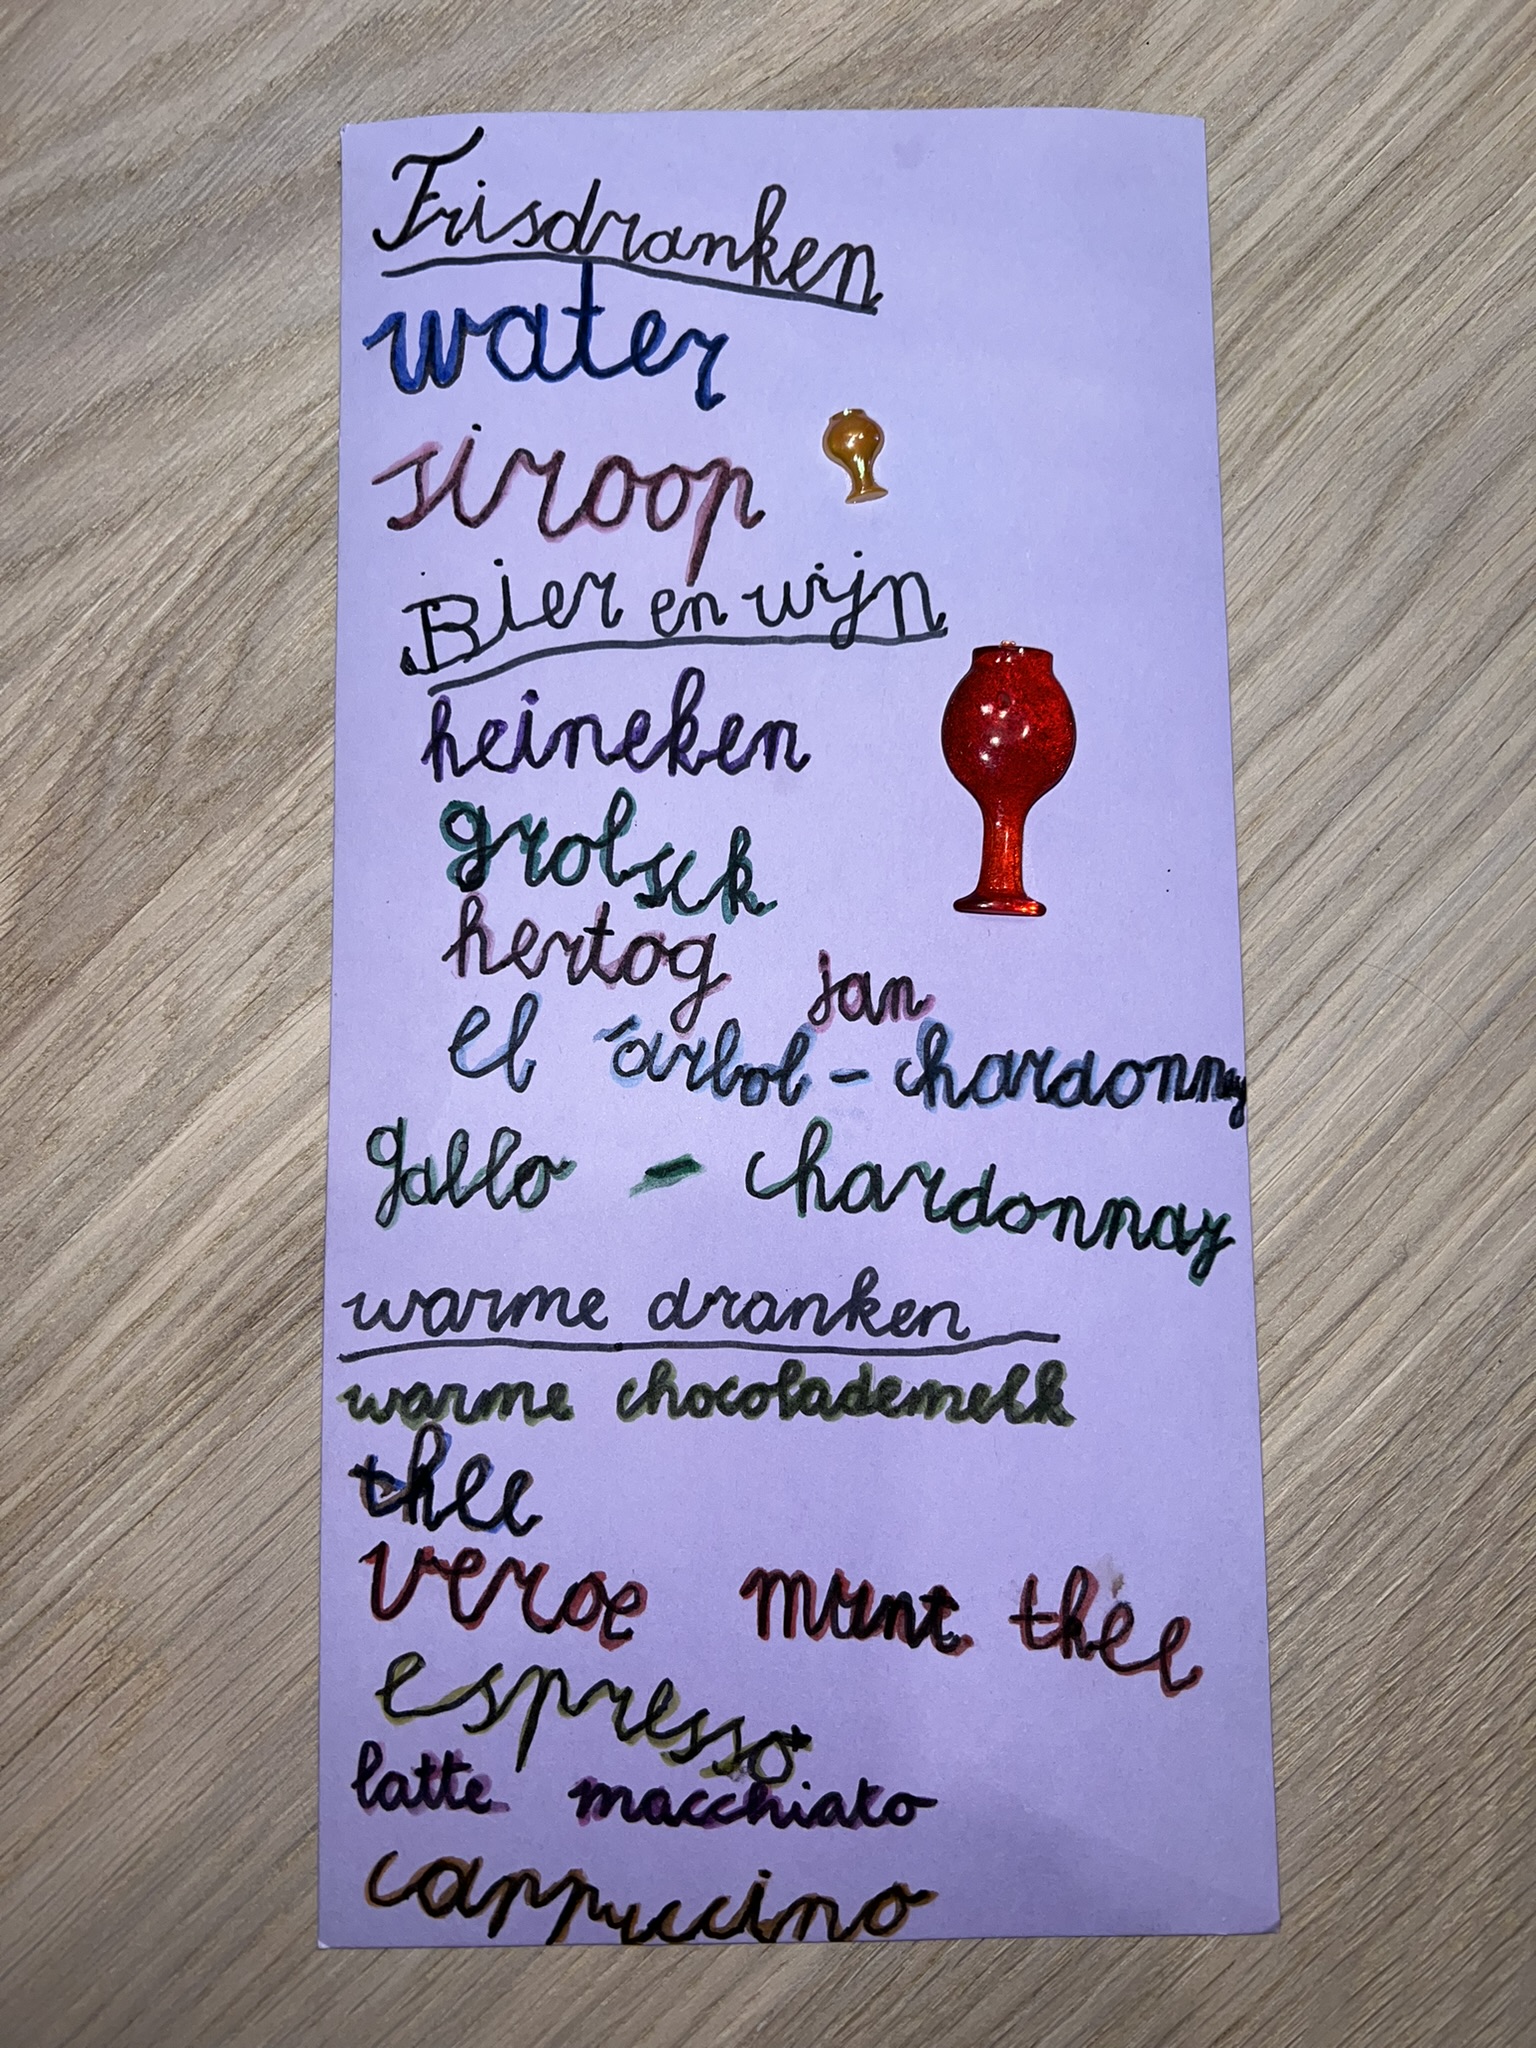 Frisdranken
water
siroop
Bier en wijn
heineken
grolsck
hertog jan
el árbol - chardonnay
gallo - chardonnay
warme dranken
warme chocolademelk
thee
verse munt thee
espresso
latte macchiato
cappuccino